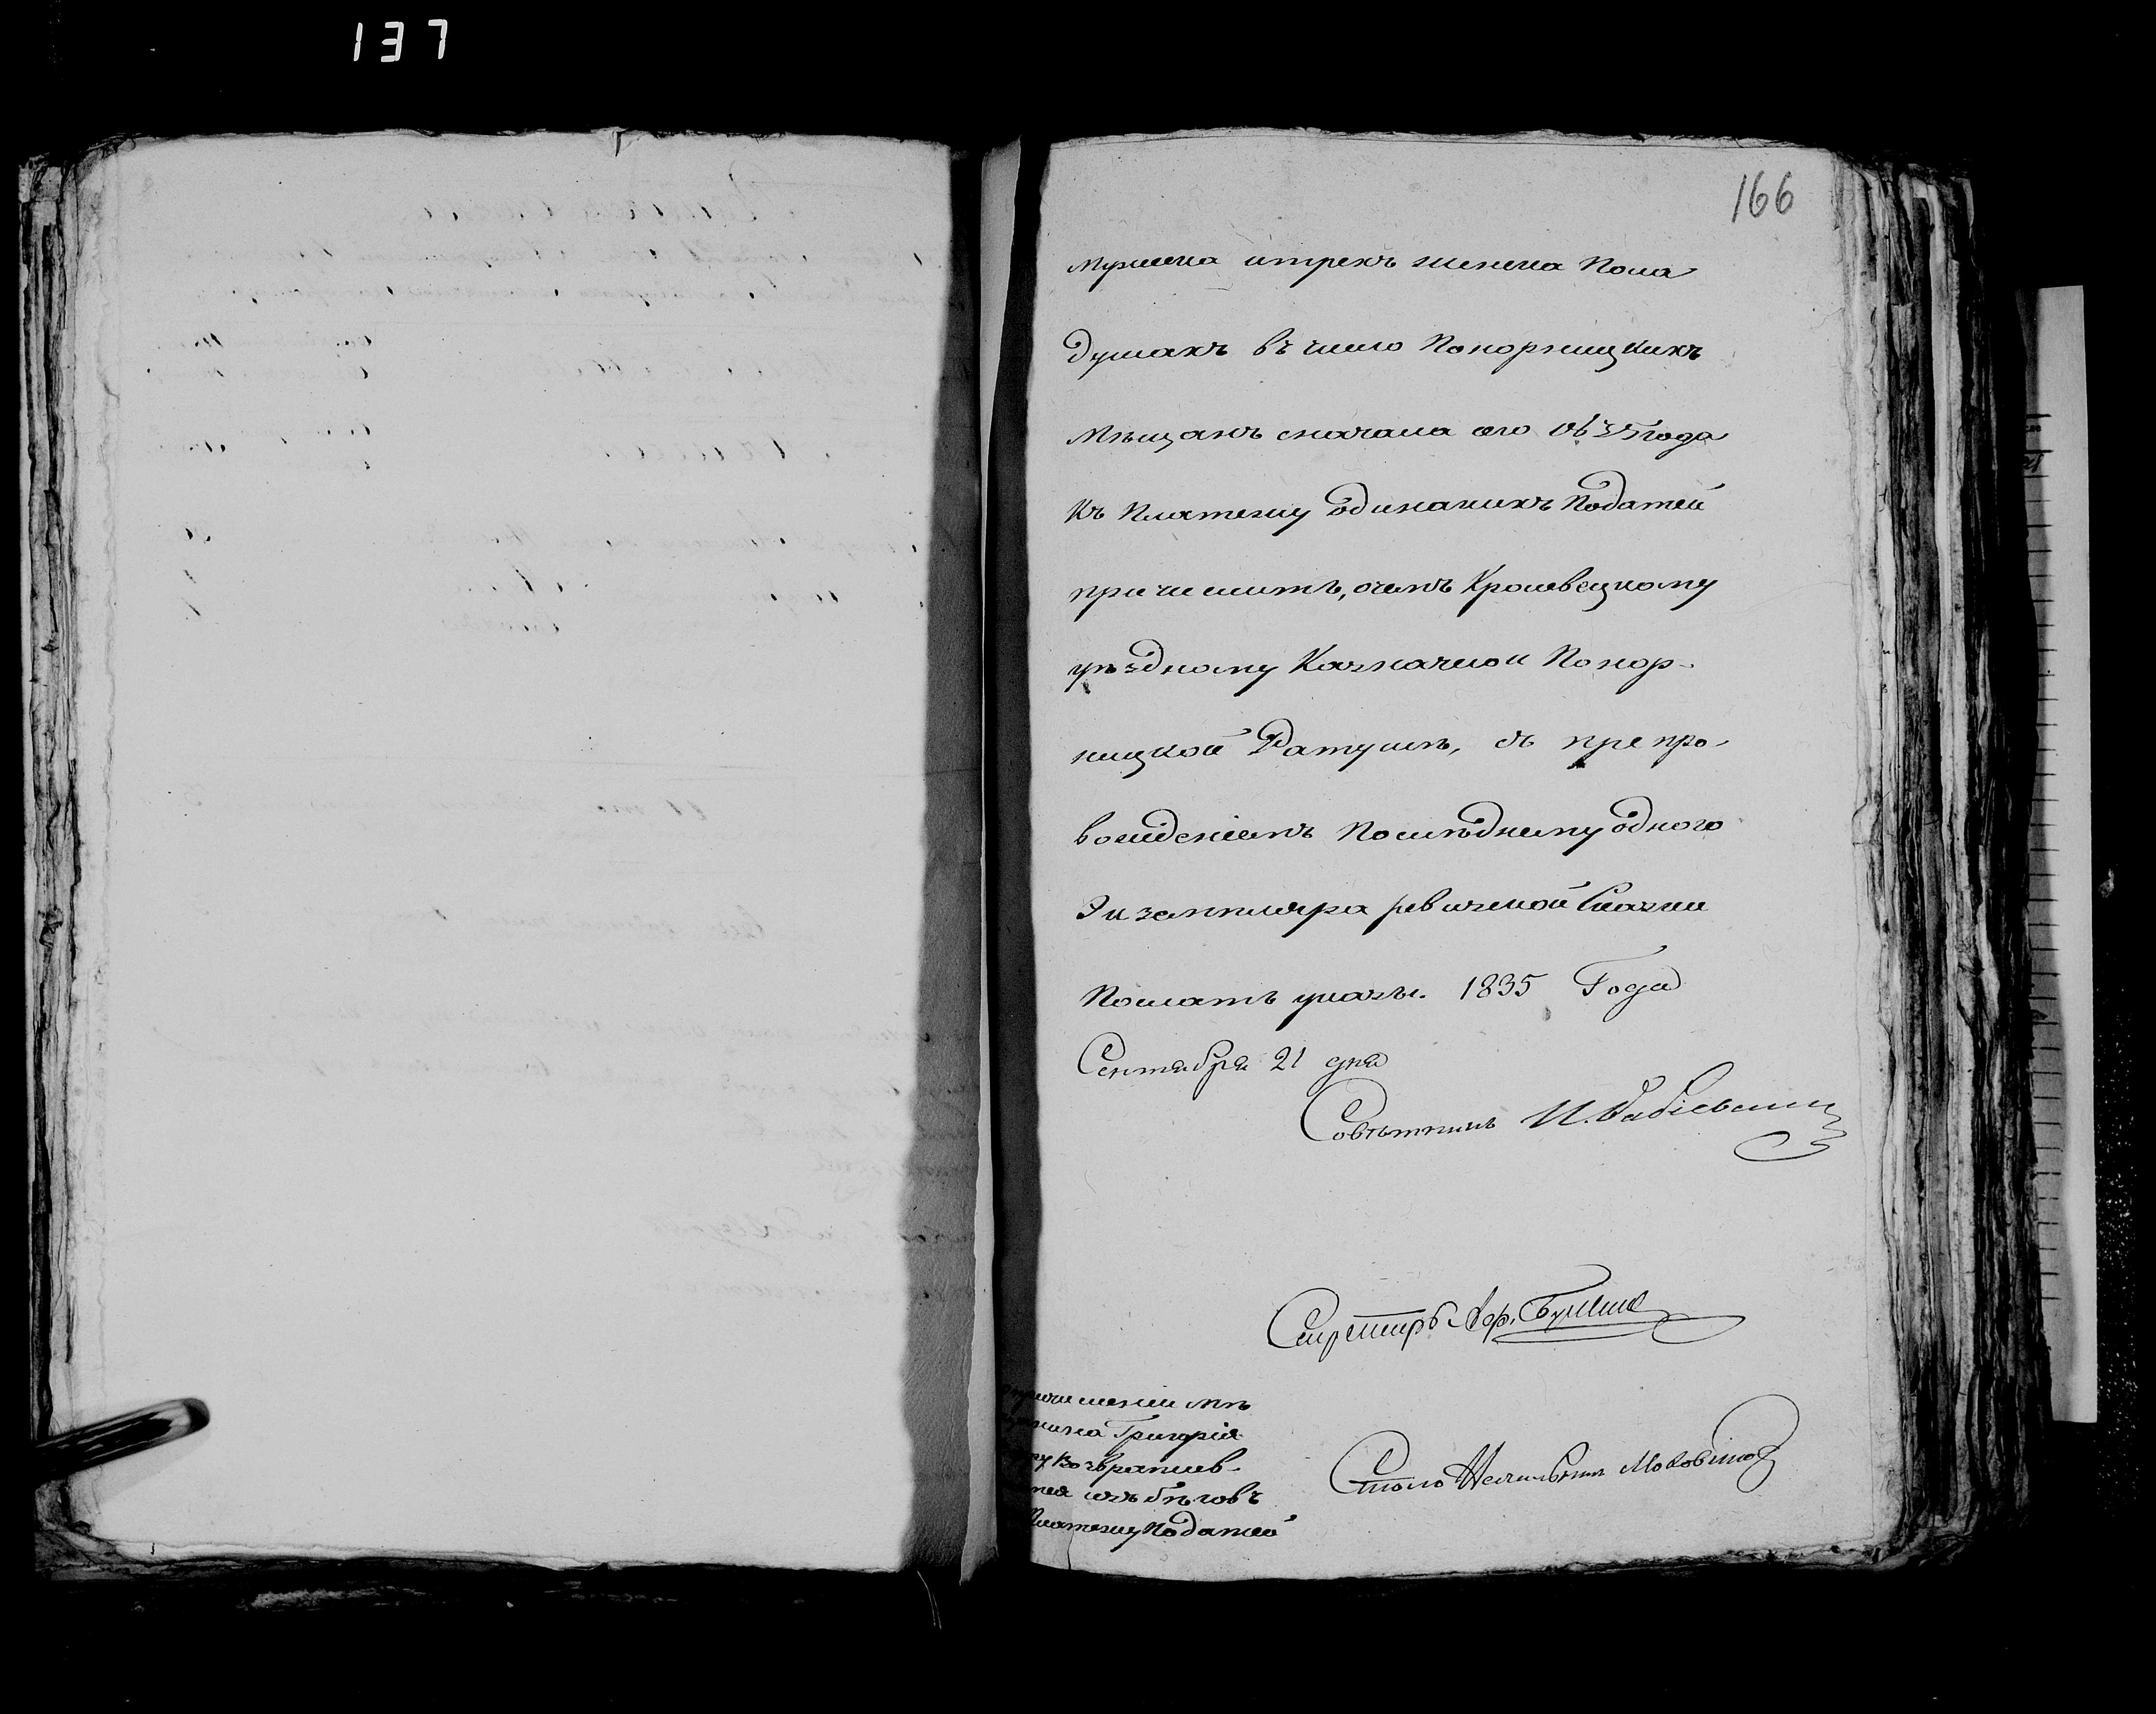 137
166
мужеска и трехъ женска пола
душахъ въ число Понорницкихъ
мѣщанъ сначала сего 1835 года
къ платежу одинакихъ податей
причислить, о чемъ Кролевецкому
уѣздному Казначею и Понор-
ницкой Ратушѣ, съ препро-
вожденіемъ послѣднему одного
Экземпляра ревизской Сказки
послать указы. 1835 Года
Сентября 21 дня
Совѣтникъ И.
Секретарь
причисленіи мѣ
Григорія
возвратив-
изъ бѣговъ
платежу податей
Столоначальникъ